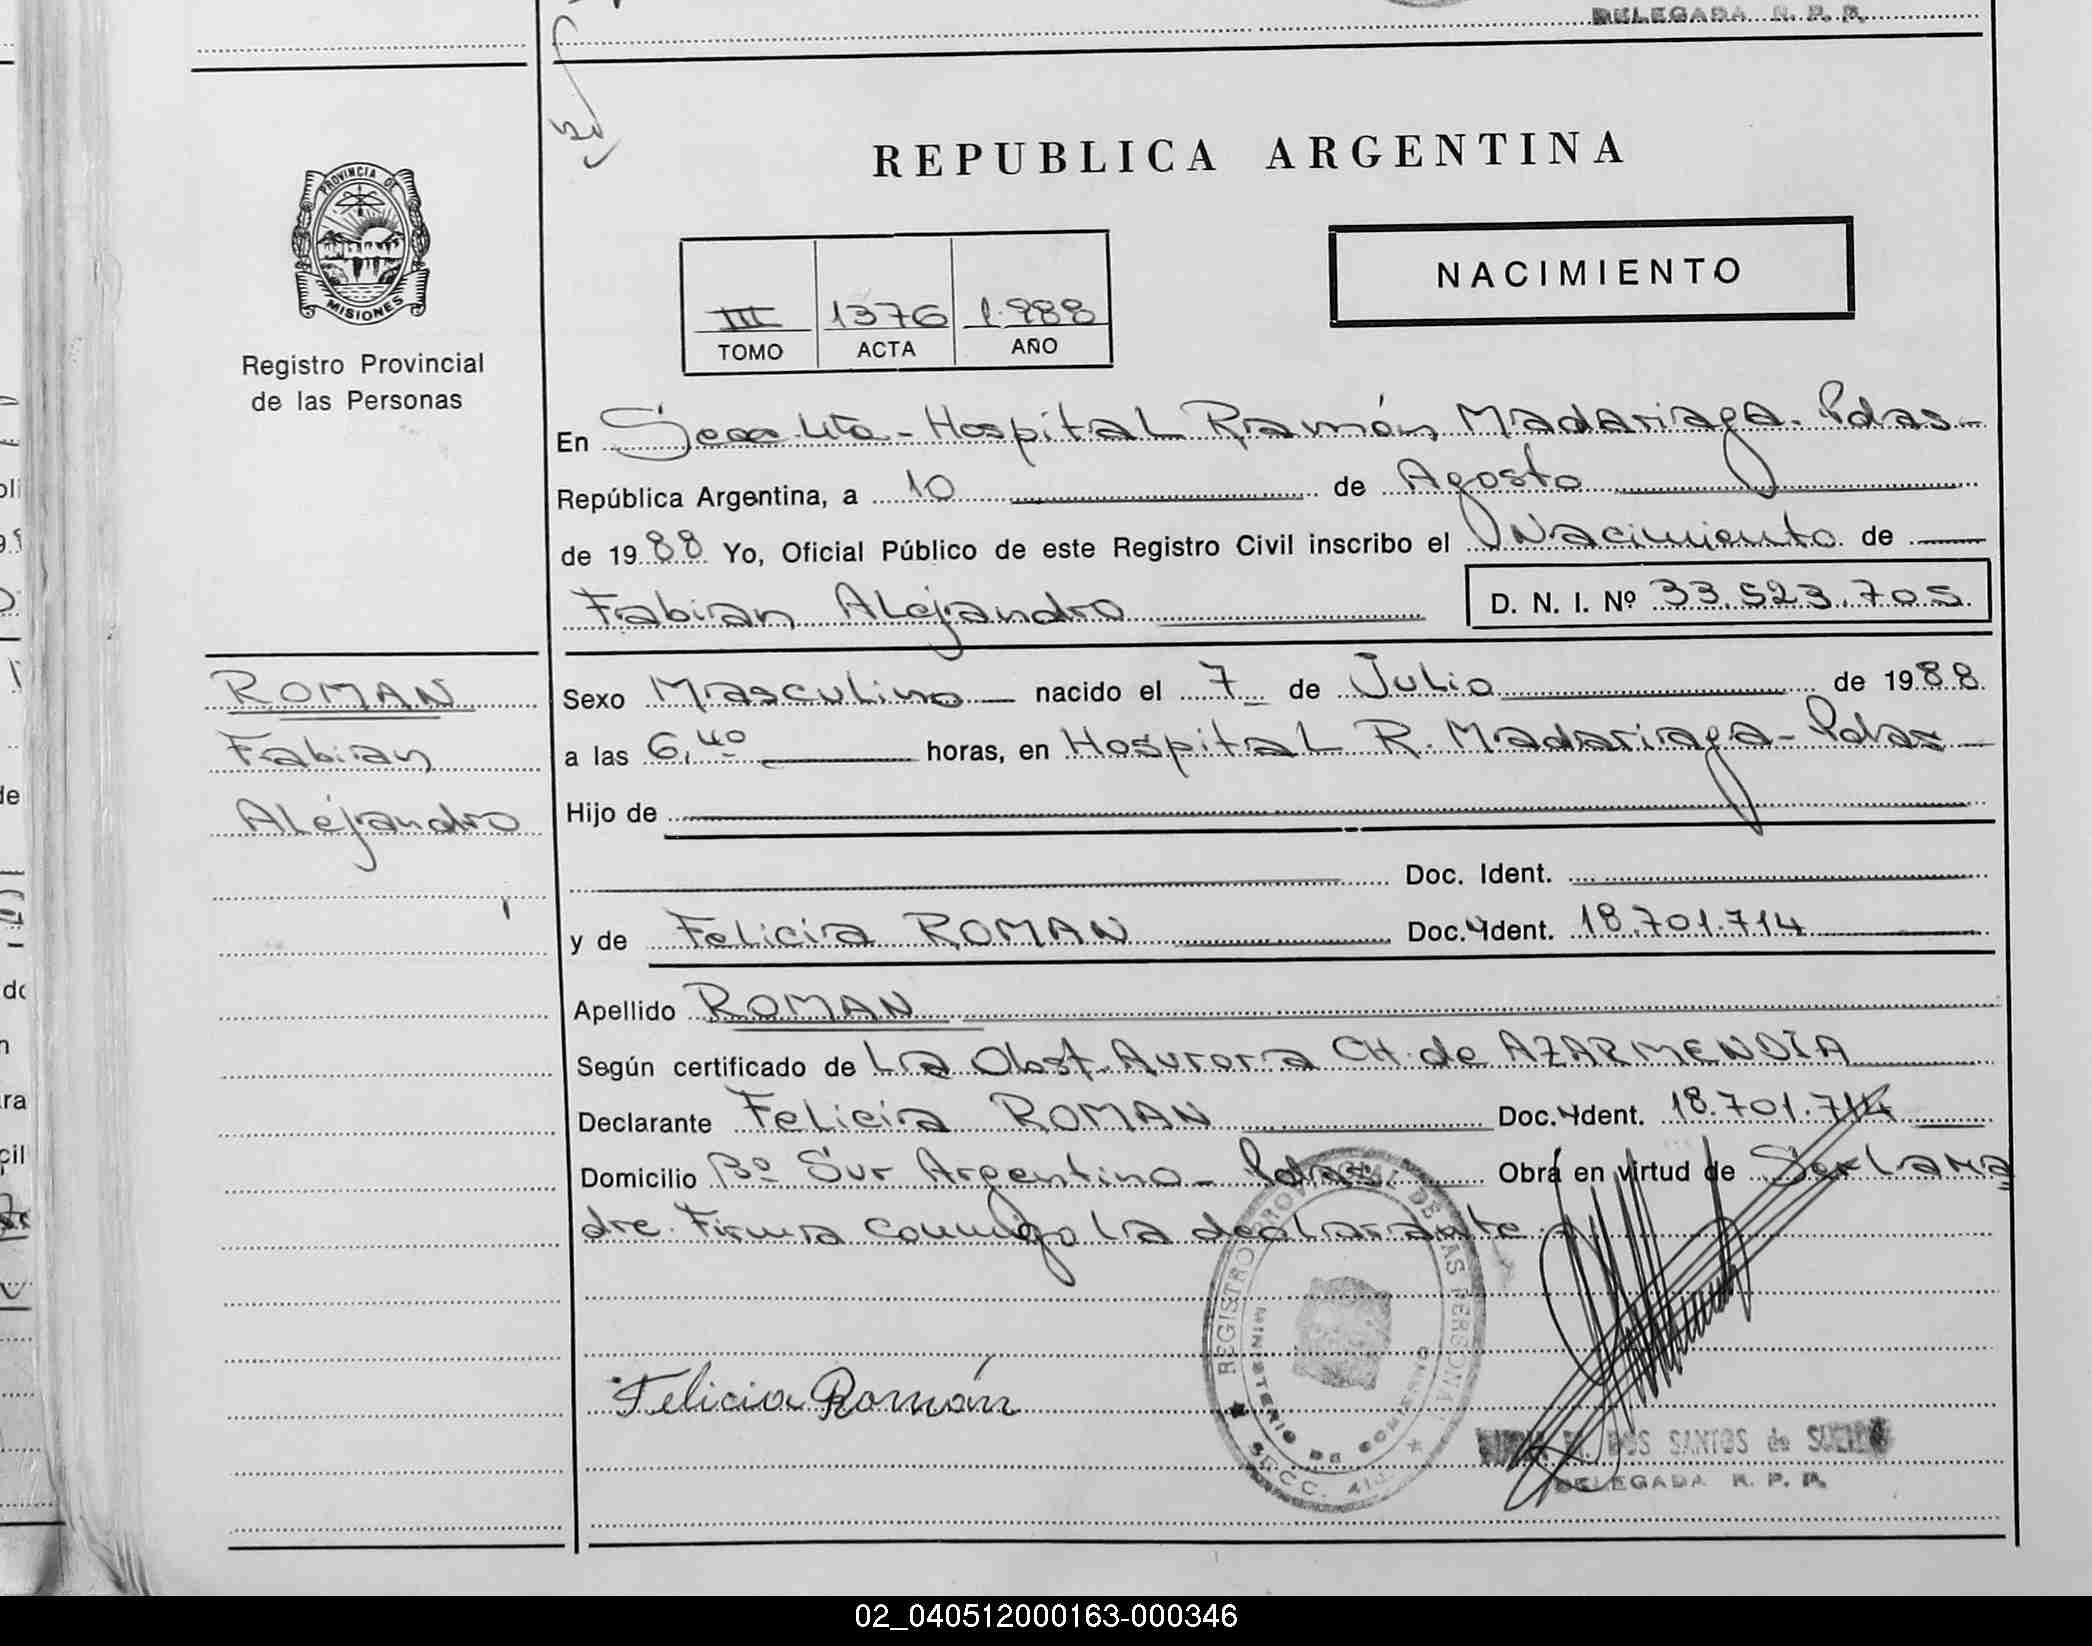 DELEGADA R. P. P.
REPUBLICA ARGENTINA
PROVINCIA DE
MISIONES
Registro Provincial
de las Personas
NACIMIENTO
III 1376 1.988
TOMO ACTA AÑO
En Secc. 4ta - Hospital Ramón Madariaga. Pdas.-
República Argentina, a 10 de Agosto
de 1988 Yo, Oficial Público de este Registro Civil inscribo el Nacimiento de
Fabian Alejandro D. N. I. Nº 33.523.705
ROMAN
Fabian
Alejandro
Sexo Masculino nacido el 7 de Julio de 1988
a las 6,40 horas, en Hospital R. Madariaga - Pdas
Hijo de
Doc. Ident.
y de Felicia ROMAN Doc. Ident. 18.701.714
Apellido ROMAN
Según certificado de La Obst. Aurora CH. de AZARMENDIA
Declarante Felicia ROMAN Doc. Ident. 18.701.714
Domicilio Bº Sur Argentino - Pdas. Obra en virtud de Ser la ma
dre. Firma conmigo la declarante.
Felicia Román
REGISTRO PROVINCIAL DE LAS PERSONAS
MINISTERIO DE GOBIERNO
SECC. 4ta
DOS SANTOS de
DELEGADA R. P. P.
02_040512000163-000346